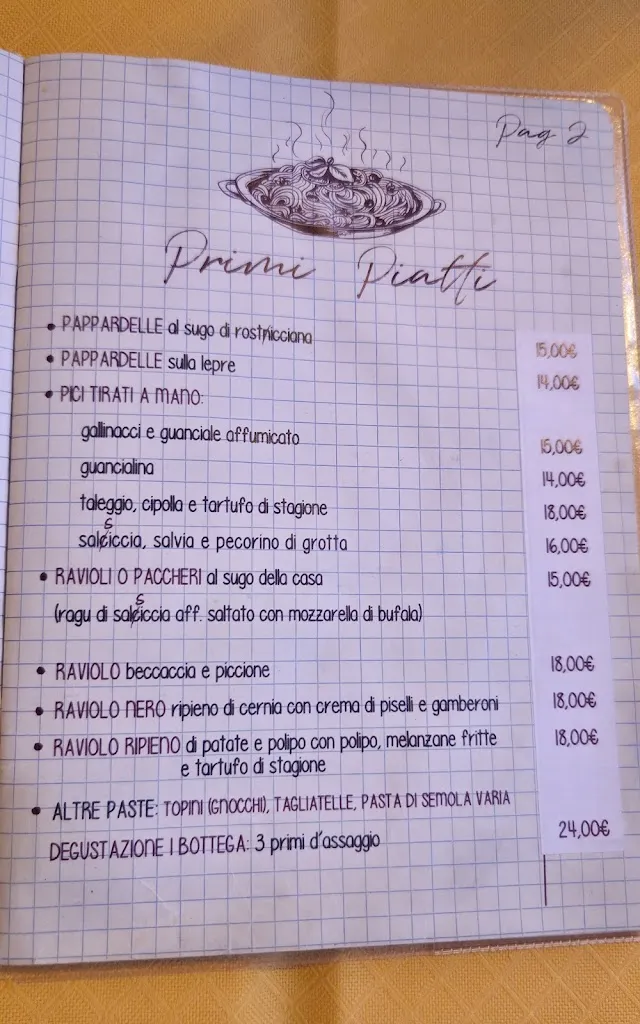 Pag 2
Primi Piatti
• PAPPARDELLE al sugo di rosticciana 15,00€
• PAPPARDELLE sulla lepre 14,00€
• PICI TIRATI A MANO:
gallinacci e guanciale affumicato 15,00€
guancialina 14,00€
taleggio, cipolla e tartufo di stagione 18,00€
salsiccia, salvia e pecorino di grotta 16,00€
• RAVIOLI O PACCHERI al sugo della casa 15,00€
(ragu di salsiccia aff. saltato con mozzarella di bufala)
• RAVIOLO beccaccia e piccione 18,00€
• RAVIOLO NERO ripieno di cernia con crema di piselli e gamberoni 18,00€
• RAVIOLO RIPIENO di patate e polipo con polipo, melanzane fritte 18,00€
e tartufo di stagione
• ALTRE PASTE: TOPINI (GNOCCHI), TAGLIATELLE, PASTA DI SEMOLA VARIA
DEGUSTAZIONE I BOTTEGA: 3 primi d'assaggio 24,00€